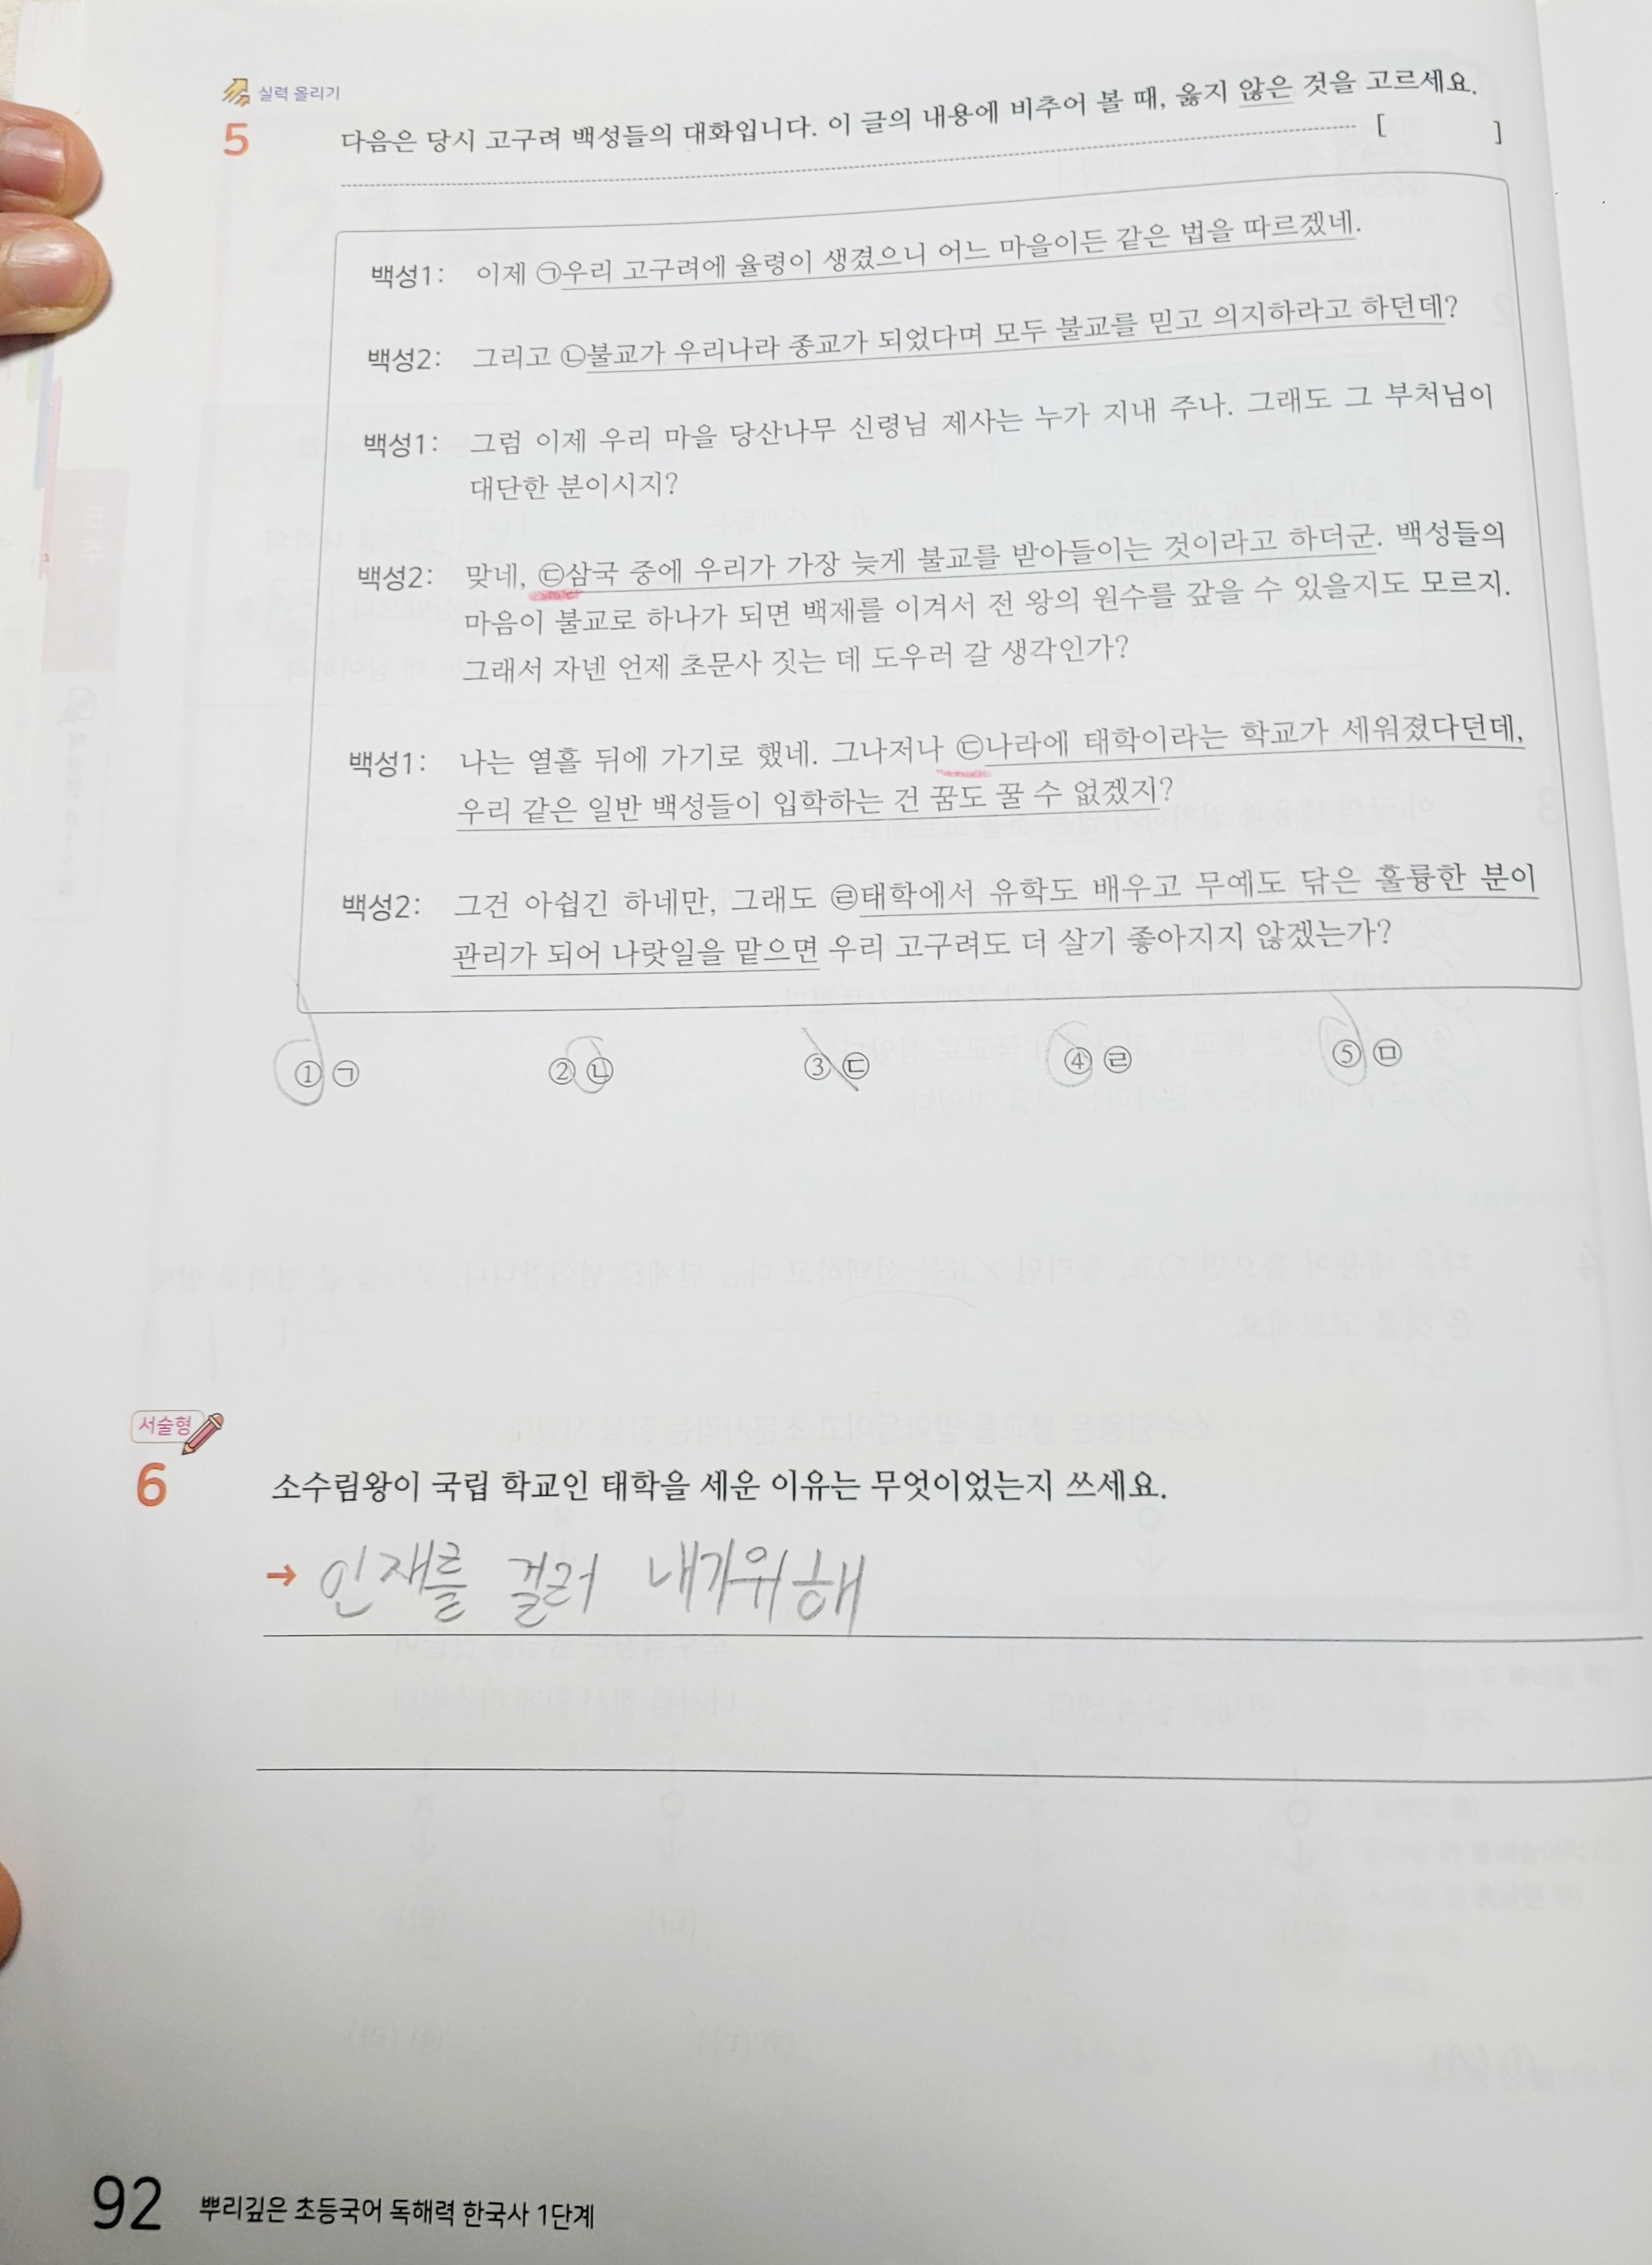 실력 올리기
5 다음은 당시 고구려 백성들의 대화입니다. 이 글의 내용에 비추어 볼 때, 옳지 않은 것을 고르세요.
[ ]
백성1: 이제 ㉠우리 고구려에 율령이 생겼으니 어느 마을이든 같은 법을 따르겠네.
백성2: 그리고 ㉡불교가 우리나라 종교가 되었다며 모두 불교를 믿고 의지하라고 하던데?
백성1: 그럼 이제 우리 마을 당산나무 신령님 제사는 누가 지내 주나. 그래도 그 부처님이
대단한 분이시지?
백성2: 맞네, ㉢삼국 중에 우리가 가장 늦게 불교를 받아들이는 것이라고 하더군. 백성들의
마음이 불교로 하나가 되면 백제를 이겨서 전 왕의 원수를 갚을 수 있을지도 모르지.
그래서 자넨 언제 초문사 짓는 데 도우러 갈 생각인가?
백성1: 나는 열흘 뒤에 가기로 했네. 그나저나 ㉢나라에 태학이라는 학교가 세워졌다던데,
우리 같은 일반 백성들이 입학하는 건 꿈도 꿀 수 없겠지?
백성2: 그건 아쉽긴 하네만, 그래도 ㉣태학에서 유학도 배우고 무예도 닦은 훌륭한 분이
관리가 되어 나랏일을 맡으면 우리 고구려도 더 살기 좋아지지 않겠는가?
① ㉠ ② ㉡ ③ ㉢ ④ ㉣ ⑤ ㉤
서술형
6 소수림왕이 국립 학교인 태학을 세운 이유는 무엇이었는지 쓰세요.
→ 인재를 걸러 내기위해
92 뿌리깊은 초등국어 독해력 한국사 1단계